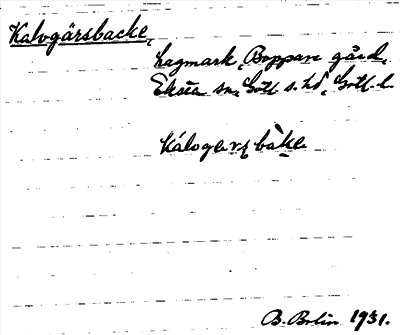 Kalvgärsbacke,
hagmark, Boppare gård,
Eksta sn, Gotl. s. hd, Gotl. l.
kálvgerʐ bàke
B. Bolin 1931.